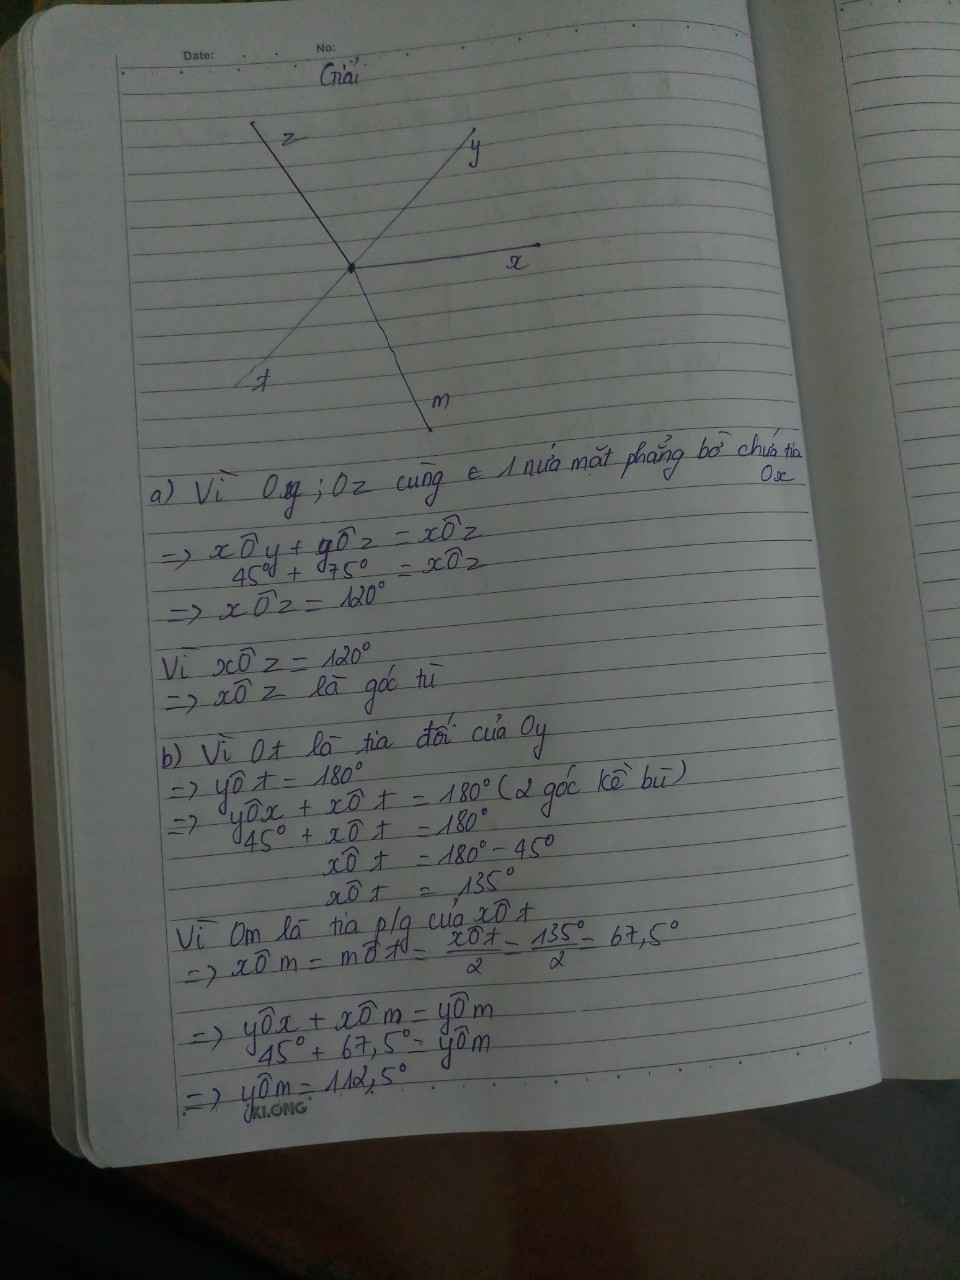 Date: No:
Giải
z
y
x
t
m
a) Vì Oy ; Oz cùng ∈ 1 nửa mặt phẳng bờ chứa tia
Ox
=> xÔy + yÔz = xÔz
45° + 75° = xÔz
=> xÔz = 120°
Vì xÔz = 120°
=> xÔz là góc tù
b) Vì Ot là tia đối của Oy
=> yÔt = 180°
=> yÔx + xÔt = 180° (2 góc kề bù)
45° + xÔt = 180°
xÔt = 180° - 45°
xÔt = 135°
Vì Om là tia p/g của xÔt
=> xÔm = mÔt = xÔt/2 = 135°/2 = 67,5°
=> yÔx + xÔm = yÔm
45° + 67,5° = yÔm
=> yÔm = 112,5°
KLONG